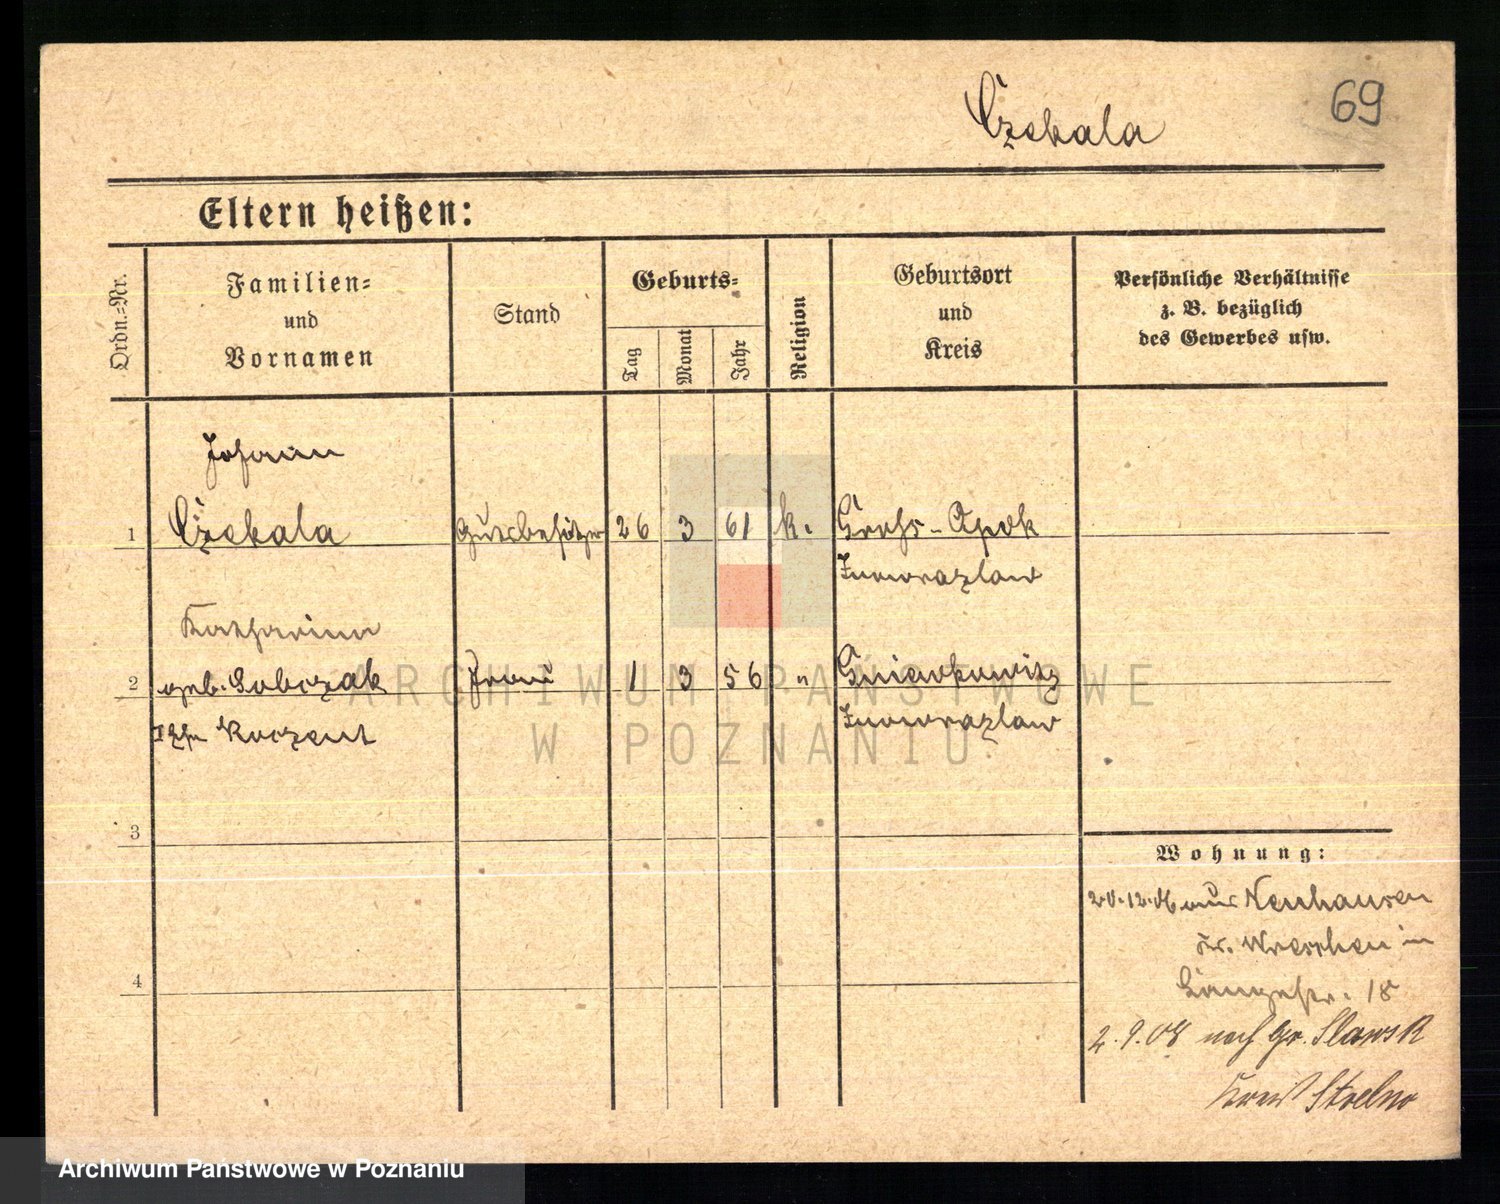 69
Czekala
Eltern heißen:
Ordn.-Nr.
Familien-
und
Vornamen
Stand
Geburts-
Tag
Monat
Jahr
Religion
Geburtsort
und
Kreis
Persönliche Verhältnisse
z. B. bezüglich
des Gewerbes usw.
Johann
1 Czekala Gutsbesitzer 26 3 61 k. Gross-Opok
Inowrazlaw
Katharina
2 geb. Sobczak Frau 1 3 56 " Gniewkowitz
Koczent Inowrazlaw
3
Wohnung:
20.12.06 aus Neuhausen
Kr. Wreschen in
4
18
2.9.08 nach Gr. Slawsk
Kreis Strelno
ARCHIWUM PAŃSTWOWE
W POZNANIU
Archiwum Państwowe w Poznaniu